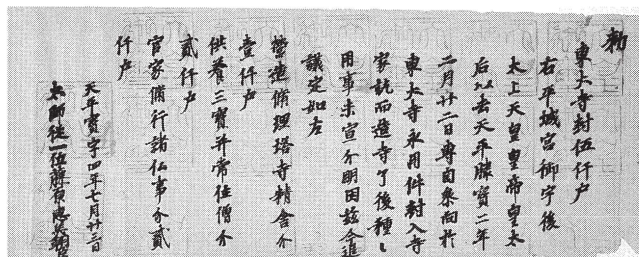 勅
東大寺封伍仟戸
右平城宮御宇後
太上天皇皇帝皇太
后以去天平勝寳二年
二月廿二日専自参向於
東大寺永用件封入寺
家訖而造寺了後種〻
用事未宣分明因茲今追
議定如左
営造修理塔寺精舎分
壹仟戸
供養三寳并常住僧分
貳仟戸
官家修行諸仏事分貳
仟戸
天平寳字四年七月廿三日
太師従一位藤原恵美朝臣